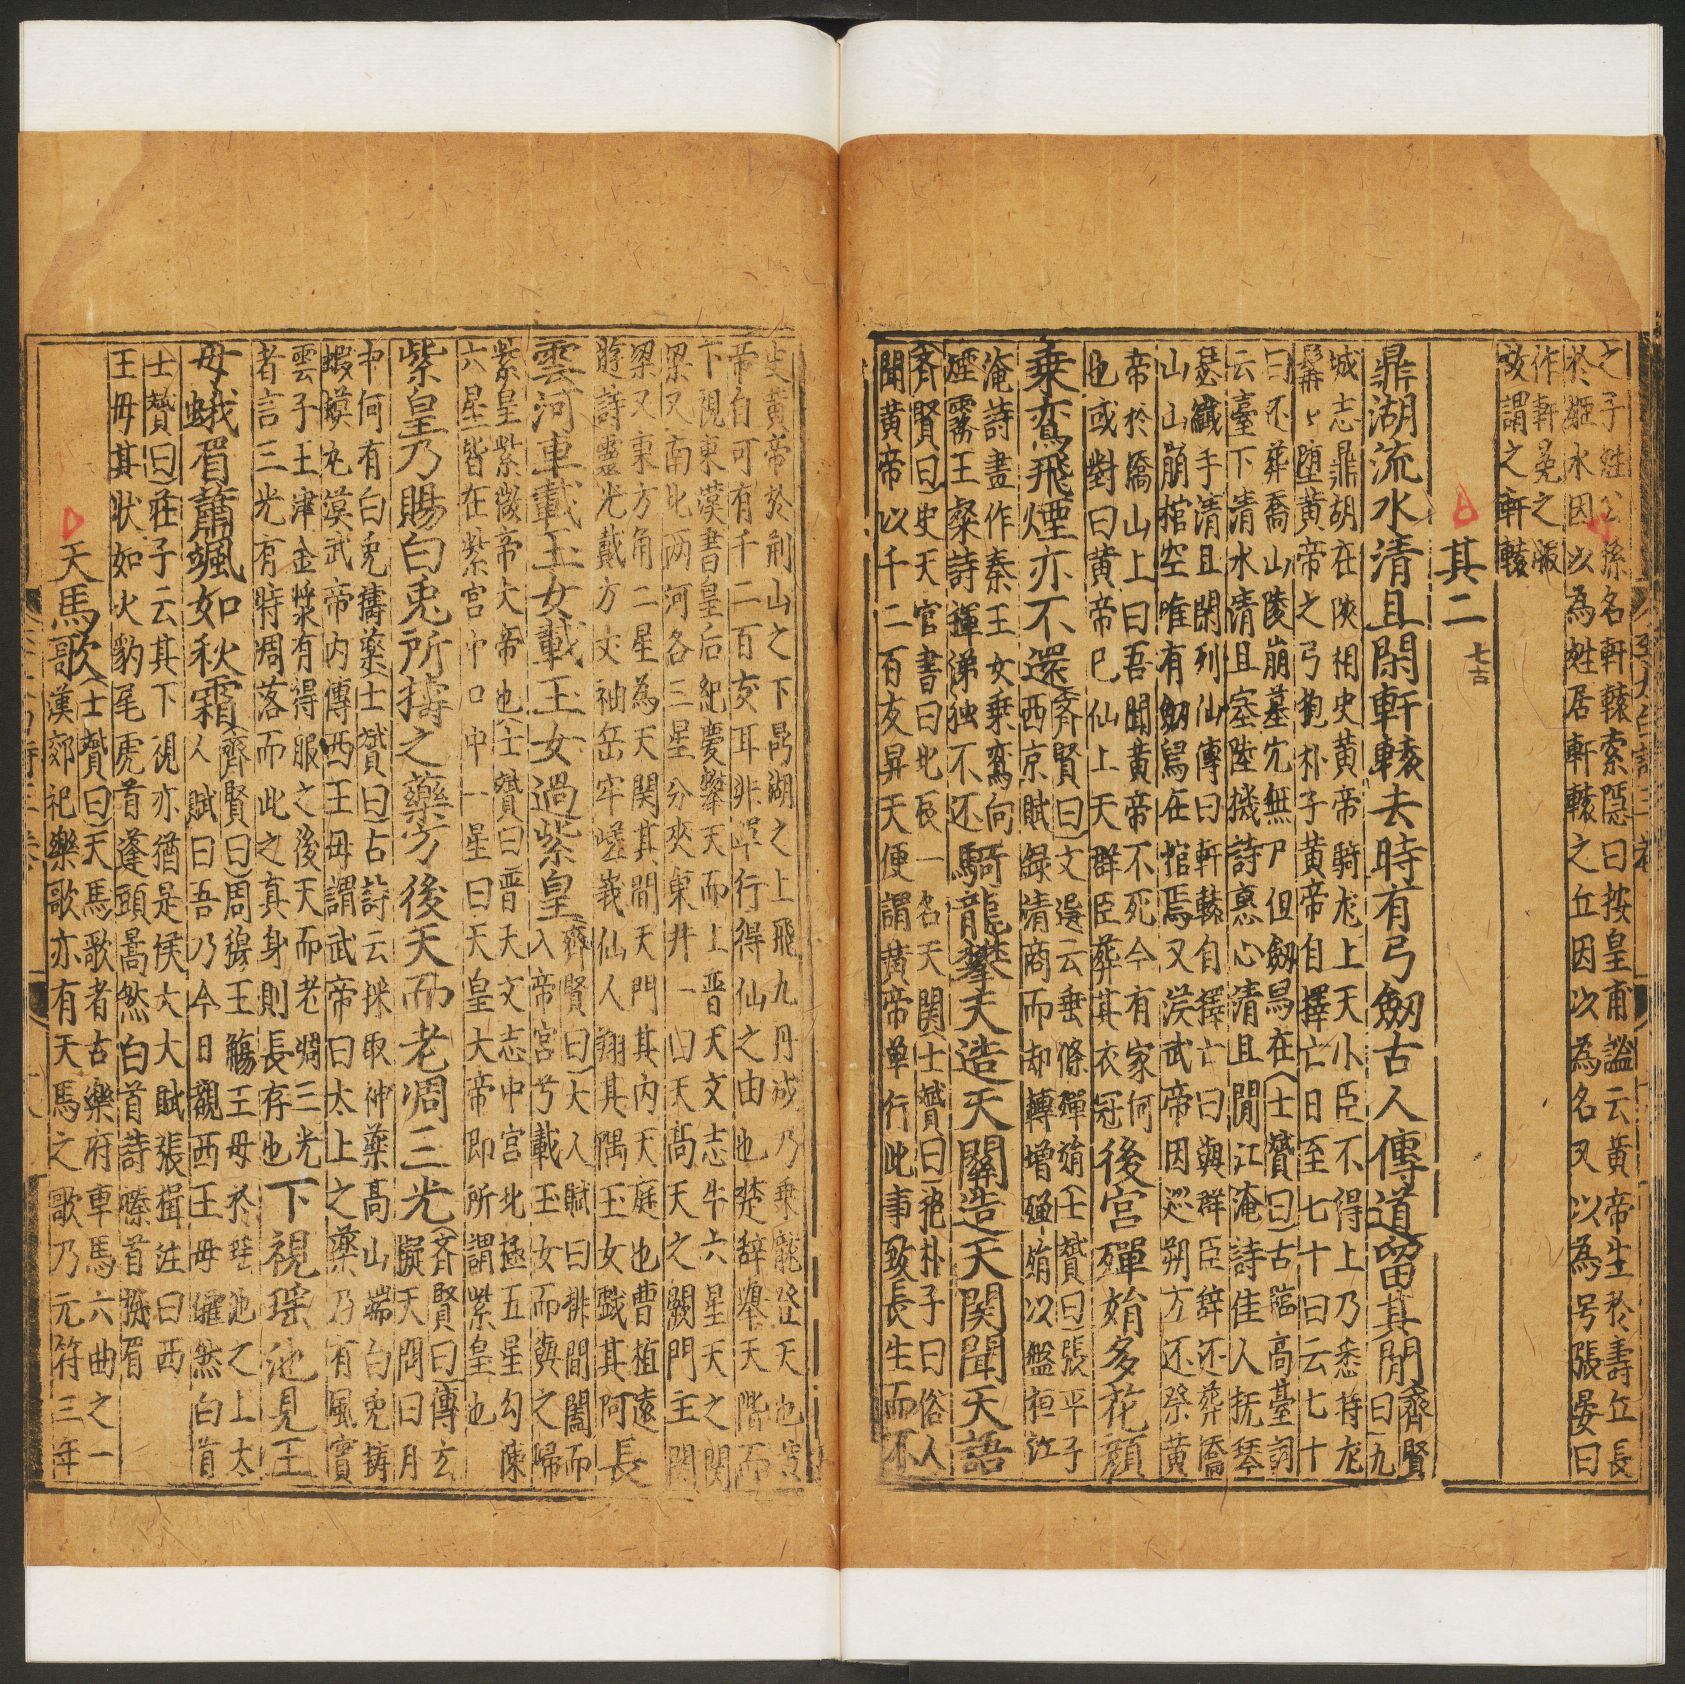 之子姓公孫名軒轅索隱曰按皇甫謐云黃帝生於壽丘長
於姬水因以為姓居軒轅之丘因以為名又以為号張晏曰
作軒冕之服
故謂之軒轅
其二 七言
鼎湖流水清且閑軒轅去時有弓劒古人傳道留其間
齊賢曰九
城志鼎胡在陝相史黃帝騎龙上天小臣不得上乃悉持龙
髯髯堕黃帝之弓抱朴子黃帝自擇亡日至七十日云七十
日还葬喬山陵崩墓穴無尸但劔舄在士贇曰古臨高臺詞
云臺下清水清且寒陸機詩惠心清且閒江淹詩佳人抚琴
瑟纎手清且閑列仙傳曰軒轅自擇亡日與群臣辞还葬橋
山山崩棺空唯有劔舄在棺焉又漢武帝因巡朔方还祭黃
帝於橋山上曰吾聞黃帝不死今有家何
也或對曰黃帝已仙上天群臣葬其衣冠
後宮嬋娟多花顏
乘鸞飛煙亦不還
齊賢曰文選云垂條嬋媛士贇曰張平子
西京賦㘿清商而却轉增嬋娟以盤桓江
淹詩畫作秦王女乗鸞向
煙霧王粲詩揮涕独不还
騎龍攀天造天關造天関聞天語
齊賢曰史天官書曰北辰一名天関士贇曰抱朴子曰俗人
聞黃帝以千二百女昇天便謂黃帝单行此事致長生而不
知黃帝於荆山之下鼎湖之上飛九丹成乃乗龍登天也黃
帝自可有千二百女耳非单行得仙之由也楚辞攀天階而
下視東漢書皇后紀慶攀天而上晋天文志牛六星天之関
梁又南北两河各三星分夾東井一曰天高天之闕門主関
梁又東方角二星為天関其間天門其内天庭也曹植遠
遊詩靈光戴方丈袖岳牢嵯峩仙人翔其隅玉女戱其阿
長
雲河車載玉女載玉女過紫皇
齊賢曰大人賦曰排閶闔而
入帝宮兮載玉女而與之歸
紫皇紫微帝大帝也士贇曰晋天文志中宮北極五星勾陳
六星皆在紫宮中口中一星曰天皇大帝即所謂紫皇也
紫皇乃賜白兎所擣之藥方後天而老凋三光
齊賢曰傳玄
擬天問曰月
中何有白兎擣藥士贇曰古詩云採取神藥高山端白兎擣
蝦蟆丸漢武帝内傳西王母謂武帝曰太上之藥乃有風實
雲子玉津金漿有得服之後天而老凋三光
者言三光有時凋落而此之真身則長存也
下視瑶池見王
母蛾眉蕭颯如秋霜
齊賢曰周穆王觴王母於瑶池之上大
人賦曰吾乃今日覩西王母皬然白首
士贇曰莊子云其下視亦猶是候大大賦張揖注曰西
王母其狀如人豹尾虎首蓬頭暠然白首詩螓首蛾眉
天馬歌
士贇曰天馬歌者古樂府車馬六曲之一
漢郊祀樂歌亦有天馬之歌乃元符三年